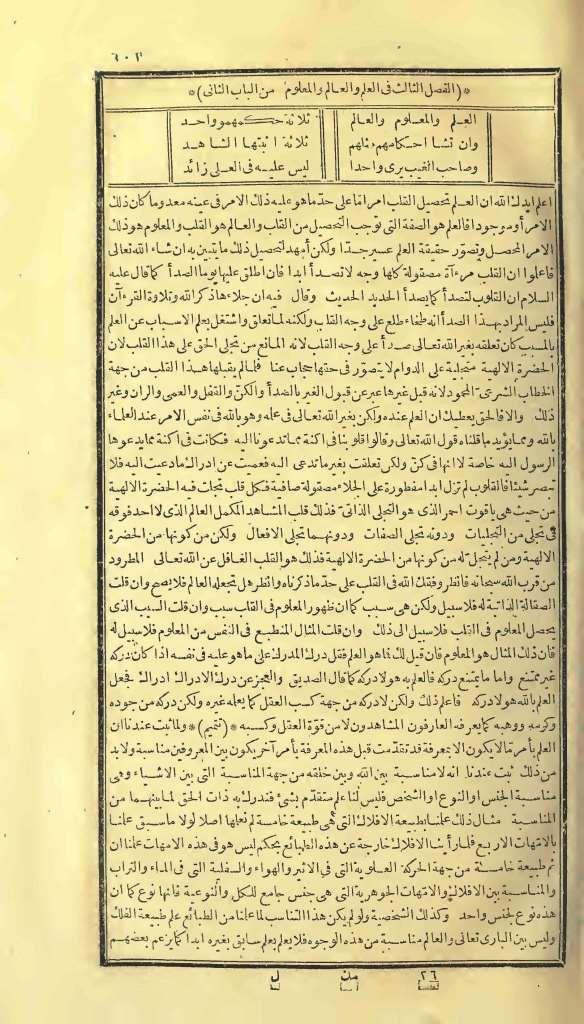 ٢٠٢
*(الفصل الثالث فى العلم والعالم والمعلوم من الباب الثانى)*
العـلم والمعـلوم والعالم ثلاثة حكمهمو واحد
وان تشا احكامهم مثلهم ثلاثة اثبتها الشاهد
وصاحب الغيب يرى واحدا ليس عليه فى العلى زائد
اعلم ايدك الله ان العلم تحصيل القلب امر اما على حد ما هو عليه ذلك الامر فى عينه معدوما كان ذلك
الامر أو موجودا فالعلم هو الصفة التى توجب التحصيل من القلب والعالم هو القلب والمعلوم هو ذلك
الامر المحصل وتصور حقيقة العلم عسير جدا ولكن أمهد لتحصيل ذلك ما يتبين به ان شاء الله تعالى
فاعلموا ان القلب مرءآة مصقولة كلها وجه لا تصدأ ابدا فان اطلق عليها يوما الصدأ كما قال عليه
السلام ان القلوب لتصدأ كما يصدأ الحديد الحديث وقال فيه ان جلاءها ذكر الله وتلاوة القرءآن
فليس المراد بهذا الصدأ انه طخاء طلع على وجه القلب ولكنه لما تعلق واشتغل بعلم الاسباب عن العلم
بالمسبب كان تعلقه بغير الله تعالى صدأ على وجه القلب لانه المانع من تجلى الحق على هذا القلب لان
الحضرة الالهية متجلية على الدوام لا يتصور فى حقها حجاب عنا فلما لم يقبلها هذا القلب من جهة
الخطاب الشرعى المحمود لانه قبل غيرها عبر عن قبول الغير بالصدأ والكن والقفل والعمى والران وغير
ذلك والا فالحق يعطيك ان العلم عنده ولكن بغير الله تعالى فى علمه وهو بالله فى نفس الامر عند العلماء
بالله ومما يؤيد ما قلناه قول الله تعالى وقالوا قلوبنا فى اكنة مما تدعونا اليه فكانت فى اكنة مما يدعوها
الرسول اليه خاصة لا انها فى كن ولكن تعلقت بغير ما تدعى اليه فعميت عن ادراك ما دعيت اليه فلا
تبصر شيئا فالقلوب لم تزل ابدا مفطورة على الجلاء مصقولة صافية فكل قلب تجلت فيه الحضرة الالهية
من حيث هى ياقوت احمر الذى هو التجلى الذاتى فذلك قلب المشاهد المكمل العالم الذى لا احد فوقه
فى تجلى من التجليات ودونه تجلى الصفات ودونهما تجلى الافعال ولكن من كونها من الحضرة
الالهية ومن لم يتجل له من كونها من الحضرة الالهية فذلك هو القلب الغافل عن الله تعالى المطرود
من قرب الله سبحانه فانظر وفقك الله فى القلب على حد ما ذكرناه وانظر هل تجعله العالم فلا يصح وان قلت
الصقالة الذاتية له فلا سبيل ولكن هى سبب كما ان ظهور المعلوم فى القلب سبب وان قلت السبب الذى
يحصل المعلوم فى القلب فلا سبيل الى ذلك وان قلت المثال المنطبع فى النفس من المعلوم فلا سبيل له
فان ذلك المثال هو المعلوم فان قيل لك فما هو العلم فقل درك المدرك على ما هو عليه فى نفسه اذا كان دركه
غير ممتنع واما ما يمتنع دركه فالعلم به هو لا دركه كما قال الصديق والعجز عن درك الادراك ادراك فجعل
العلم بالله هو لا دركه فاعلم ذلك ولكن لا دركه من جهة كسب العقل كما يعلمه غيره ولكن دركه من جوده
وكرمه ووهبه كما يعرفه العارفون المشاهدون لا من قوة العقل وكسبه *(تتميم)* ولما ثبت عندنا ان
العلم بأمر ما لا يكون الا بمعرفة قد تقدمت قبل هذه المعرفة بأمر آخر يكون بين المعروفين مناسبة ولا بد
من ذلك ثبت عندنا انه لا مناسبة بين الله وبين خلقه من جهة المناسبة التى بين الاشياء وهى
مناسبة الجنس او النوع او الشخص فليس لنا علم متقدم بشئ فندرك به ذات الحق لما بينهما من
المناسبة مثال ذلك علمنا بطبيعة الافلاك التى هى طبيعة خامسة لم نعلمها اصلا لولا ما سبق علمنا
بالامهات الاربع فلما رأينا الافلاك خارجة عن هذه الطبائع بحكم ليس هو فى هذه الامهات علمنا ان
ثم طبيعة خامسة من جهة الحركة العلوية التى فى الاثير والهواء والسفلية التى فى الماء والتراب
والمناسبة بين الافلاك والامهات الجوهرية التى هى جنس جامع للكل والنوعية فانها نوع كما ان
هذه نوع لجنس واحد وكذلك الشخصية ولو لم يكن هذا التناسب لما علمنا من الطبائع علم طبيعة الفلك
وليس بين البارى تعالى والعالم مناسبة من هذه الوجوه فلا يعلم بعلم سابق بغيره ابدا كما يزعم بعضهم
٢٦ من ل